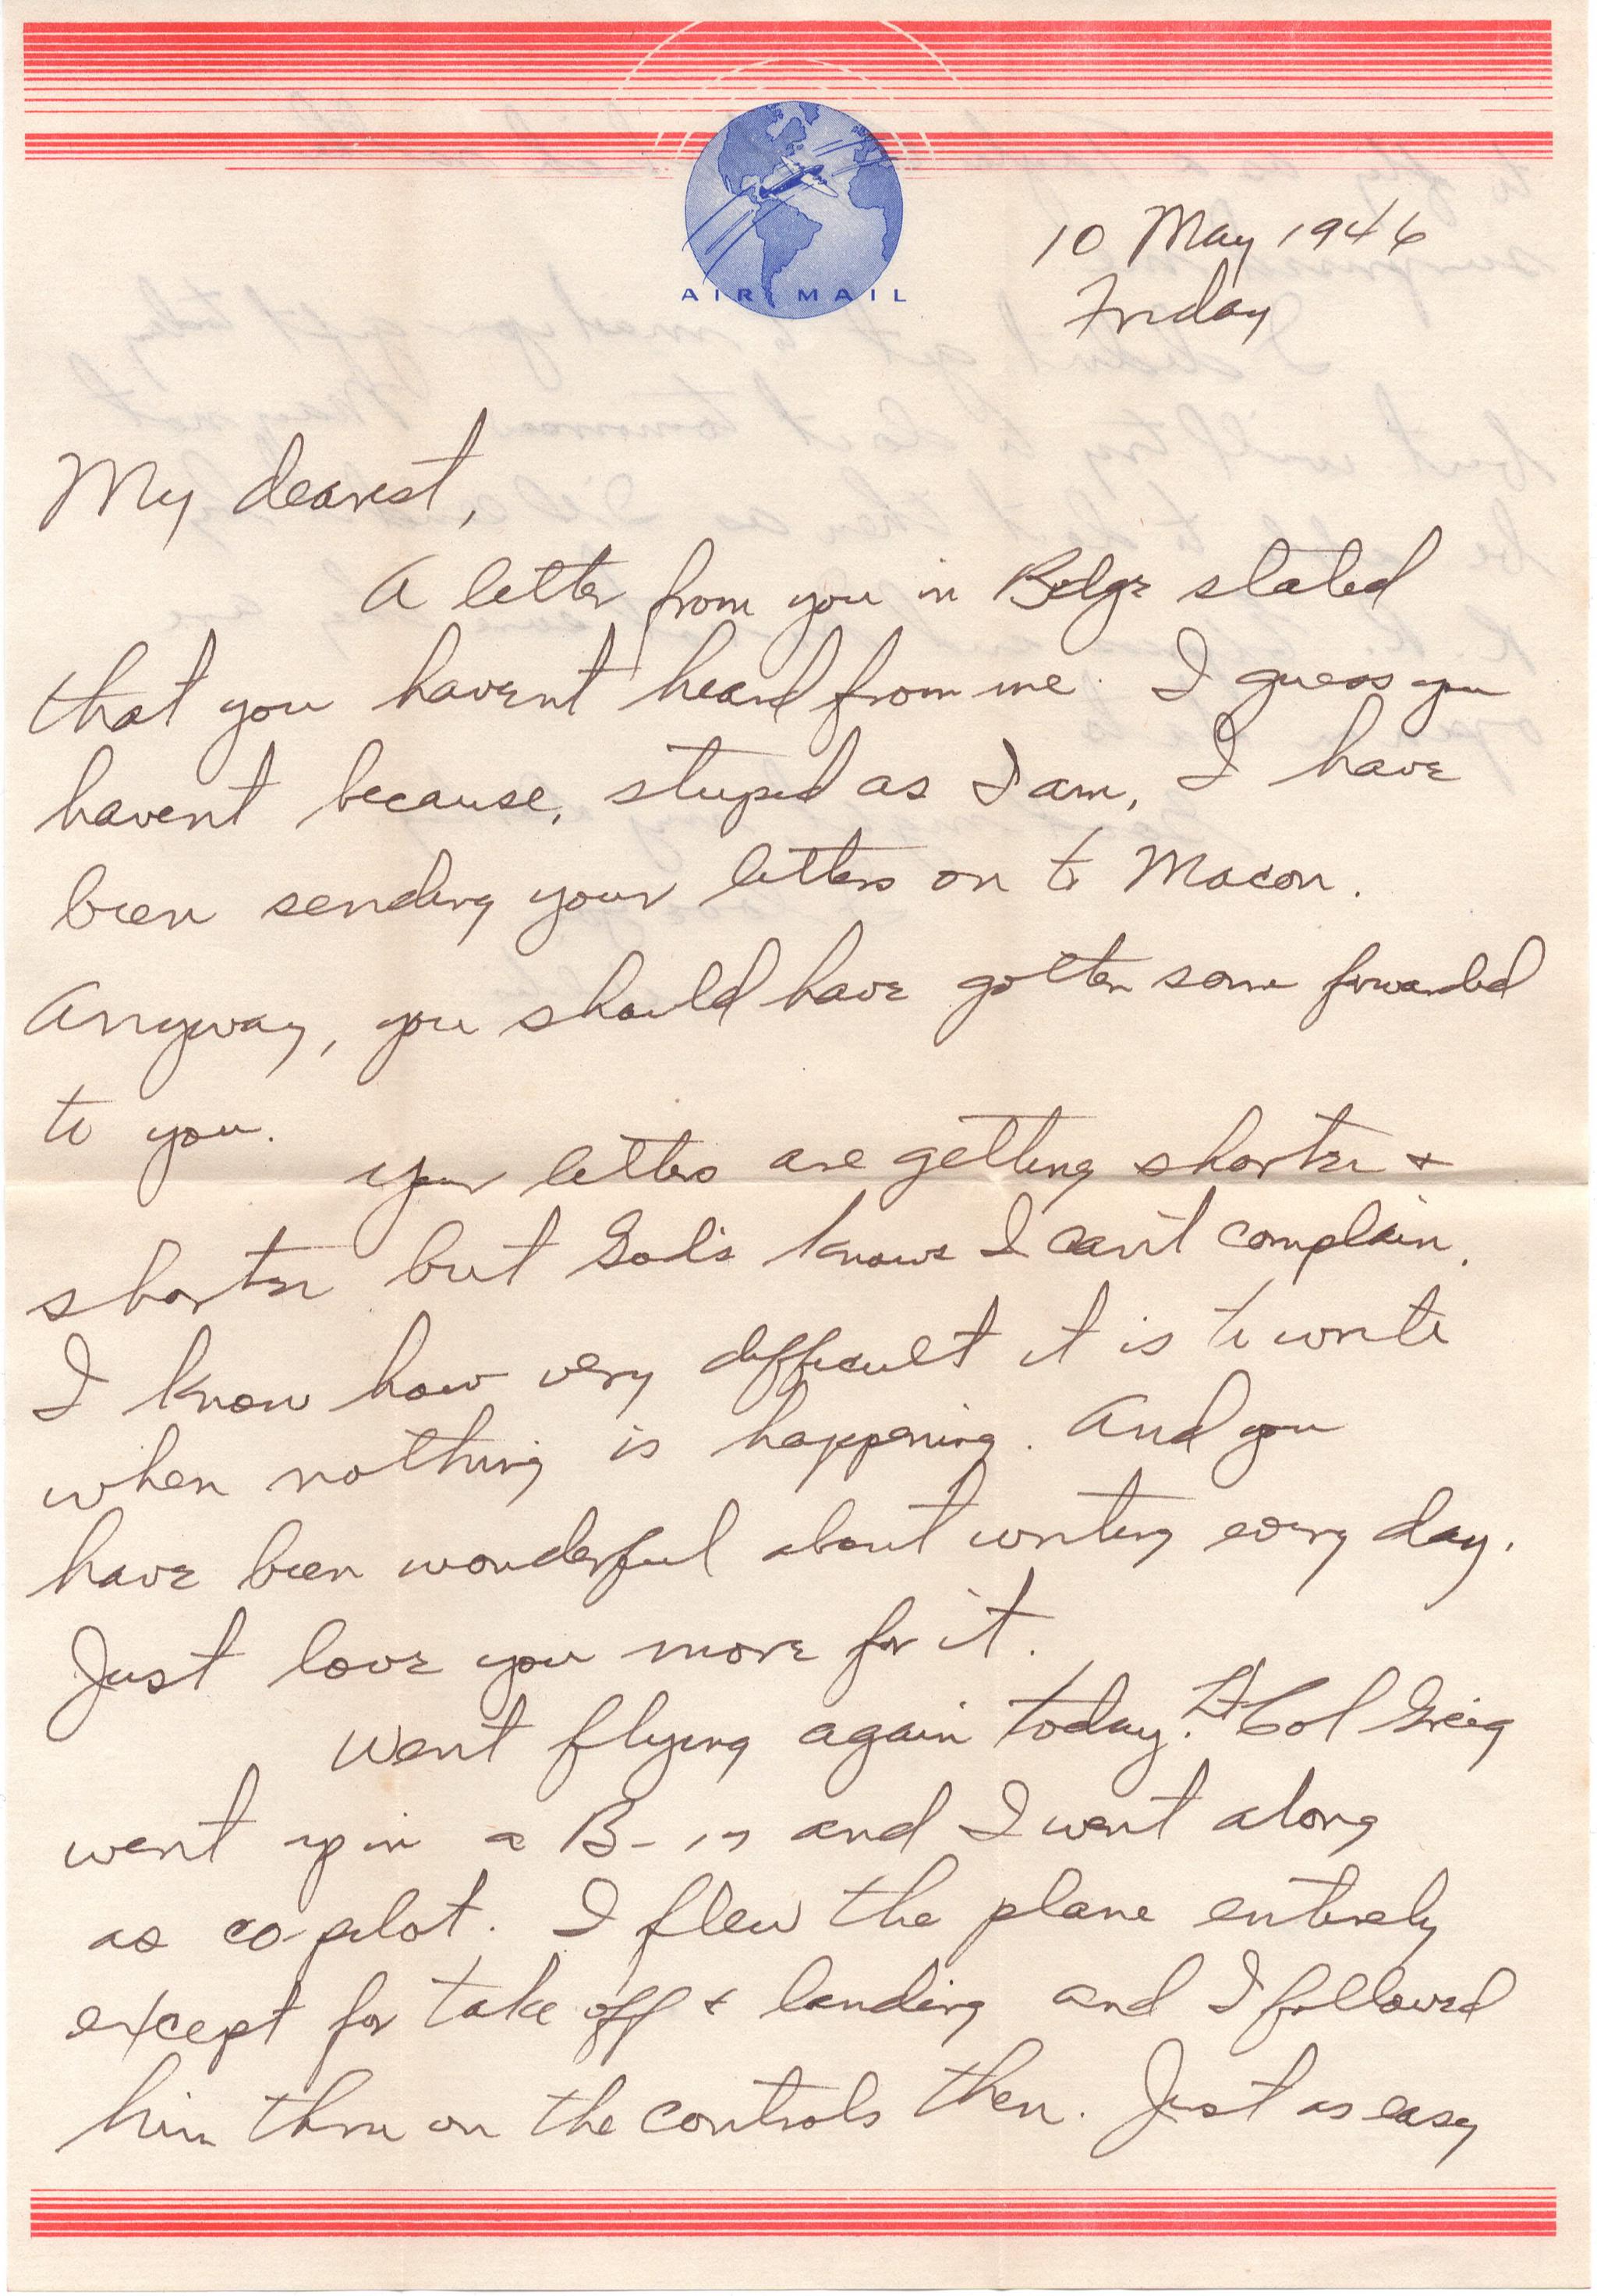 AIR MAIL
10 May 1946
Friday
My dearest,
A letter from you in Bldgr stated
that you havent heard from me. I guess you
havent because, stupid as I am, I have
been sending your letters on to Macon.
Anyway, you should have gotten some forwarded
to you.
Your letters are getting shorter &
shorter but God's knows I can't complain.
I know how very difficult it is to write
when nothing is happening. And you
have been wonderful about writing every day.
Just love you more for it.
Went flying again today. Lt Col Greig
went up in a B-17 and I went along
as co-pilot. I flew the plane entirely
except for take off & landing and I followed
him thru on the controls then. Just as easy